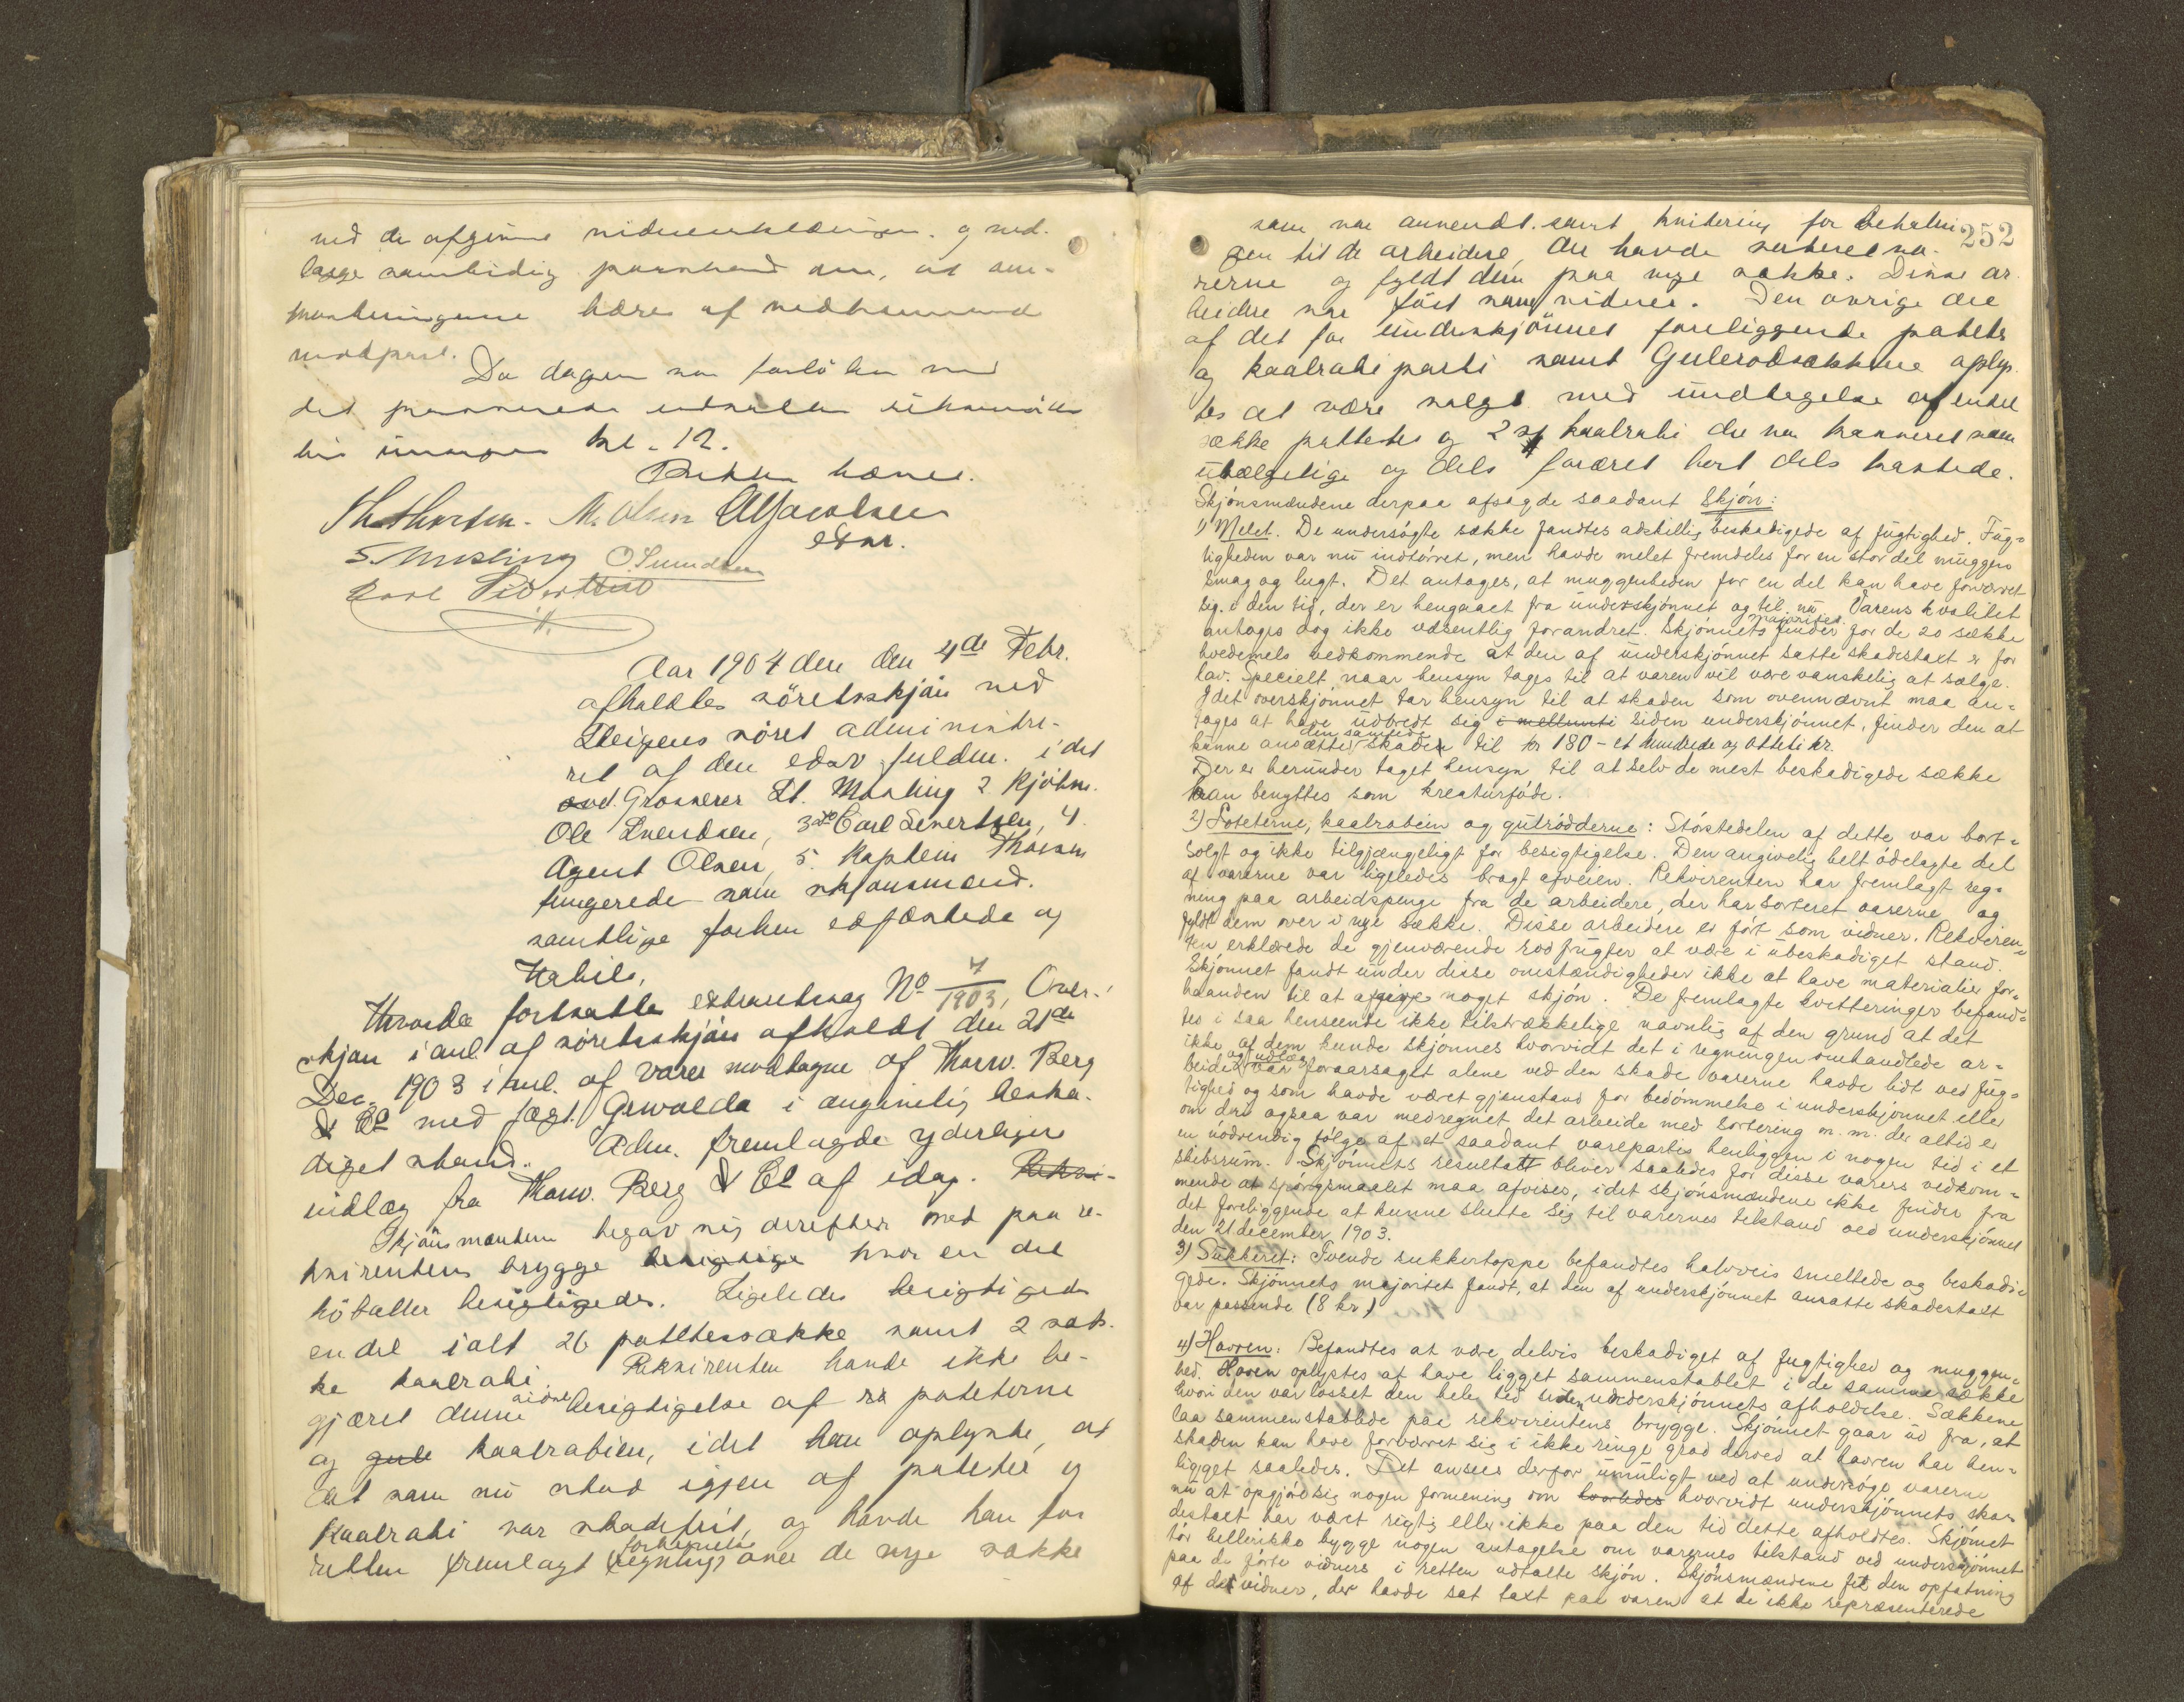 ved de afgivne vidneerklæringer og ned-
lægge samtidig paastand om, at om-
kostningerne bæres af vedkommende
modpart.
Da dagen var forløben med
det passerede udsattes
til imorgen kl. 12.
Retten hævet.
Th. Thorsen. M. Olsen A Jacobsen
edsv.
S. Musling O. Svendsen
Carl Sivertsen
Aar 1904 den den 4de Febr.
afholdtes söretsskjön ved
Steigens söret administre-
ret af den edsv fuldm. idet
Grosserer St. Musling 2 Kjöbm.
Ole Svendsen, 3 do Carl Sivertsen, 4
Agent Olsen, 5. Kaptein Thorsen
fungerede som skjönsmænd.
samtlige forhen edfæstede og
Habile,
Hvorda fortsattes extraretssag No 7/1903, Over-
skjön i anl. af söretsskjön afholdt den 21de
Dec. 1903 i anl. af varer modtagne af Thorv. Berg
& Co med jægt. Grwolda i angivelig beska-
diget stand. Adm. fremlagde yderligere
indlæg fra Thorv. Berg & Co af idag. Rekvi-
Skjönsmændene begav sig derefter ned paa re-
kvirentens brygge besigtige hvor en del
höballer besigtigedes. Ligeledes besigtigedes
en del ialt 26 pottetessække samt 2 sæk-
ke kaalrabi. Rekvirenten havde ikke be-
gjæret denne besigtigelse af poteterne
og gule kaalrabien, idet han oplyste, at
det som nu stod igjen af poteter og
Kaalrabi var skadefrit, og havde han for
retten fremlagt regning over de nye sække
252
som var anvendt samt kvitering for betalin-
gen til de arbeidere, der havde sorteret va-
rerne og fyldt dem paa nye sække. Disse ar-
beidere var fört som vidner. Den övrige del
af det for underskjönnet foreliggende potetes
og kaalrabiparti samt Gulerodsækkene oplys-
tes at være solgt med undtagelse af endel
sække pottetes og 2 sk kaalrabi der var kasseret som
ubrugelige og dels foræret bort dels kastede.
Skjönsmændene derpaa afsagde saadant Skjön:
1) Melet. De undersögte sække fandtes adskillig beskadigede af fugtighed. Fug-
tigheden var nu indtörret, men havde melet fremdeles for en stor del muggen
smag og lugt. Det antages, at muggenheden for en del kan have forværret
sig i den tid, der er hengaaet fra underskjönnet og til nu. Varens kvalitet
antages dog ikke væsentlig forandret. Skjönnets majoritet finder for de 20 sække
hvedemels vedkommende at den af underskjönnet satte skadestaxt er for
lav. Specielt naar hensyn tages til at varen vil være vanskelig at sælge.
Idet overskjönnet tar hensyn til at skaden som ovennævnt maa an-
tages at have udbredt sig i mellemti siden underskjönnet, finder den at
kunne ansætte den samlede skade til kr 180 - et hundrede og otteti kr.
Der er herunder taget hensyn til at selv de mest beskadigede sække
kan benyttes som kreaturföde.
2) Poteterne, kaalrabien og gulrödderne: Störstedelen af dette var bort-
solgt og ikke tilgjængeligt for besigtigelse. Den angivelig helt ödelagte del
af varerne var ligeledes bragt afveien. Rekvirenten har fremlagt reg-
ning paa arbeidspenge fra de arbeidere, der har sorteret varerne og
fyldt dem over i nye sække. Disse arbeidere er fört som vidner. Rekviren-
ten erklærede de gjenværende rodfrugter at være i ubeskadiget stand.
Skjönnet fandt under disse omstændigheder ikke at have materialier for-
haanden til at afgive noget skjön. De fremlagte kvitteringer befand-
tes i saa henseende ikke tilstrækkelige navnlig af den grund at det
ikke af dem kunde skjönnes hvorvidt det i regningen omhandlede ar-
beide og udlæg var foraarsaget alene ved den skade varerne havde lidt ved fug-
tighed og som havde været gjenstand for bedömmelse i underskjönnet eller
om der ogsaa var medregnet det arbeide med sortering m. m. der altid er
en nödvendig fölge af et saadant varepartis henliggen i nogen tid i et
skibsrum. Skjönnets resultatt bliver saaledes for disse varers vedkom-
mende at spörgsmaalet maa afvises, idet skjönsmændene ikke finder fra
det foreliggende at kunne slutte sig til varernes tilstand ved underskjönnet
den 21 december 1903.
3) Sukkeret: Tvende sukkertoppe befandtes halvveis smeltede og beskadi-
gede. Skjönnets majoritet fandt, at den af underskjönnet ansatte skadestaxt
var passende (8 kr.)
4) Havren: Befandtes at være delvis beskadiget af fugtighed og muggen-
hed. Havren oplystes at have ligget sammenstablet i de samme sække
hvori den var losset den hele tid siden underskjönnets afholdelse. Sækkene
laa sammenstablede paa rekvirentens brygge. Skjönnet gaar ud fra, at
skaden kan have forværret sig i ikke ringe grad derved at havren har hen-
ligget saaledes. Det ansees derfor umuligt ved at undersöge varerne
nu at opgjöre sig nogen formening om hvorledes hvorvidt underskjönnets ska-
destaxt har vært rigtig eller ikke paa den tid dette afholdtes. Skjönnet
tör hellerikke bygge nogen antagelse om varernes tilstand ved underskjönnet
paa de förte vidners i retten udtalte skjön. Skjönsmændene fik den opfatning
af de vidner, der havde sat taxt paa varen at de ikke repræsenterede